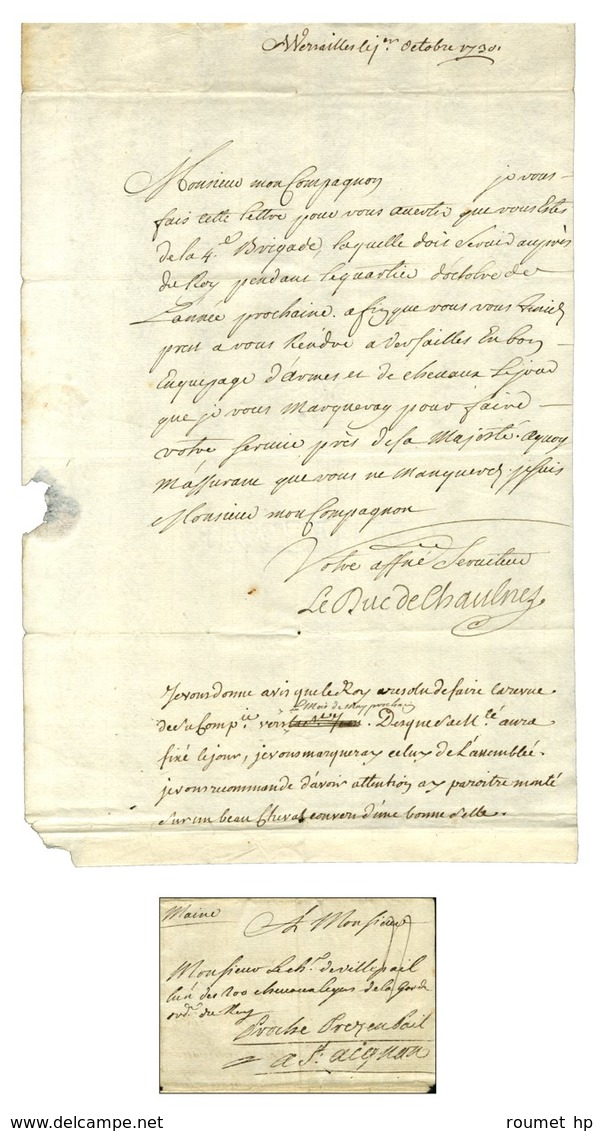 A Versailles le 1er Octobre 1738.
Monsieur mon Compagnon je vous
fais cette lettre pour vous avertir que vous Estes
de la 4e Brigade, laquelle doit Servir aupres
du Roy pendant le quartier d'octobre de
L'année prochaine. afin que vous vous teniez
prest a vous Rendre a Versailles En bon
Enquepage d'Armes et de chevaux Le jour
que je vous Marqueray pour faire
votre service près de sa Majesté. aquoy
M'assurant que vous ne Manquerez, je suis
Monsieur mon Compagnon
Votre affné Serviteur
Le Duc de Chaulnes
Je vous donne avis que le Roy a resolu de faire la reveue
le Mois de May prochain
de sa Compie vers. Des que Sa Mté aura
fixé le jour, je vous marqueray celuy de L'assemblée.
je vous recommande d'avoir attention a y paroitre monté
Sur un beau Cheval couvert d'une bonne Selle.
Maine
A Monsieur
Monsieur Le chr. de villepail
l'un des 200 chevaux legers de la Garde
ordre du Roy
Proche Prezenpail
a St. aignan
roumet hp